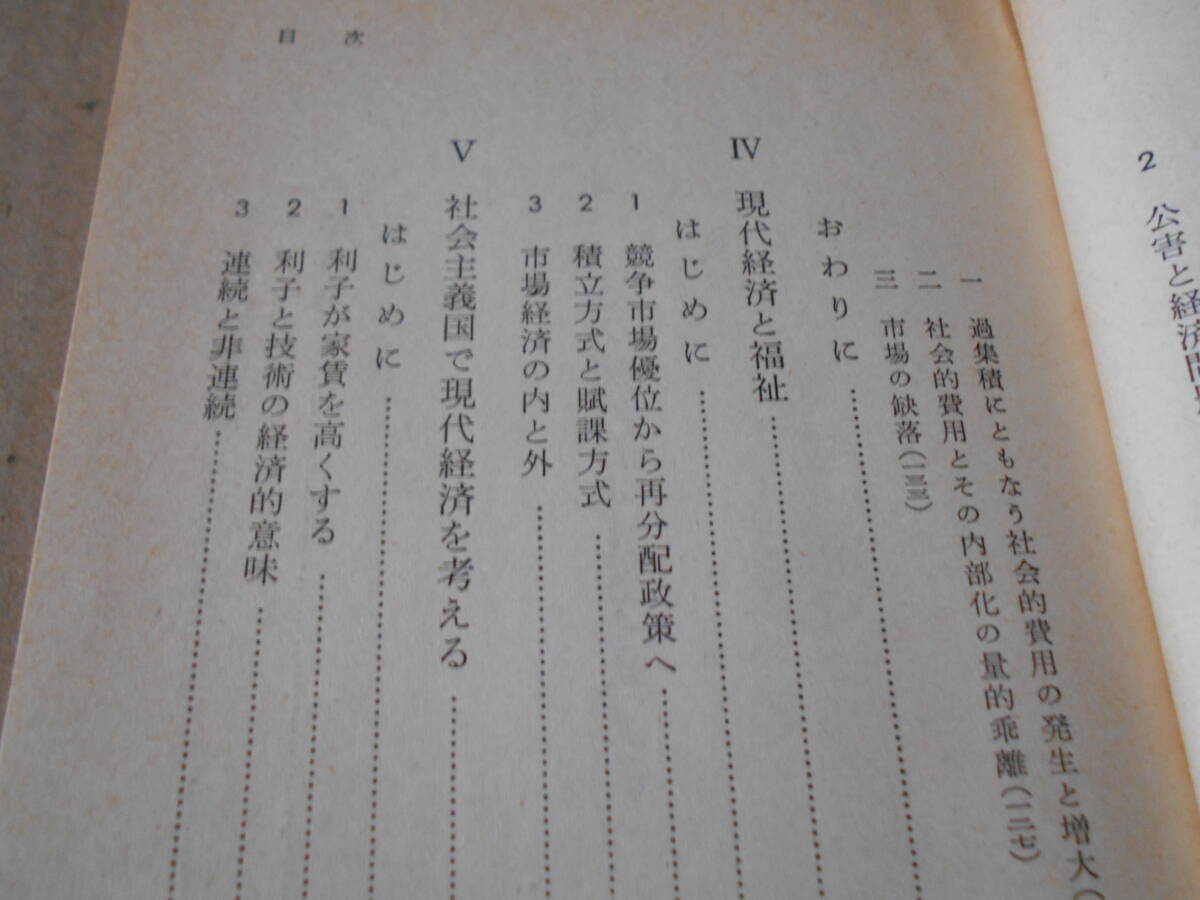 2 公害と経済
目次
一 過集積にともなう社会的費用の発生と増大(
二 社会的費用とその内部化の量的乖離(一二七)
三 市場の欠落(一三三)
おわりに
IV 現代経済と福祉
はじめに
1 競争市場優位から再分配政策へ
2 積立方式と賦課方式
3 市場経済の内と外
V 社会主義国で現代経済を考える
はじめに
1 利子が家賃を高くする
2 利子と技術の経済的意味
3 連続と非連続